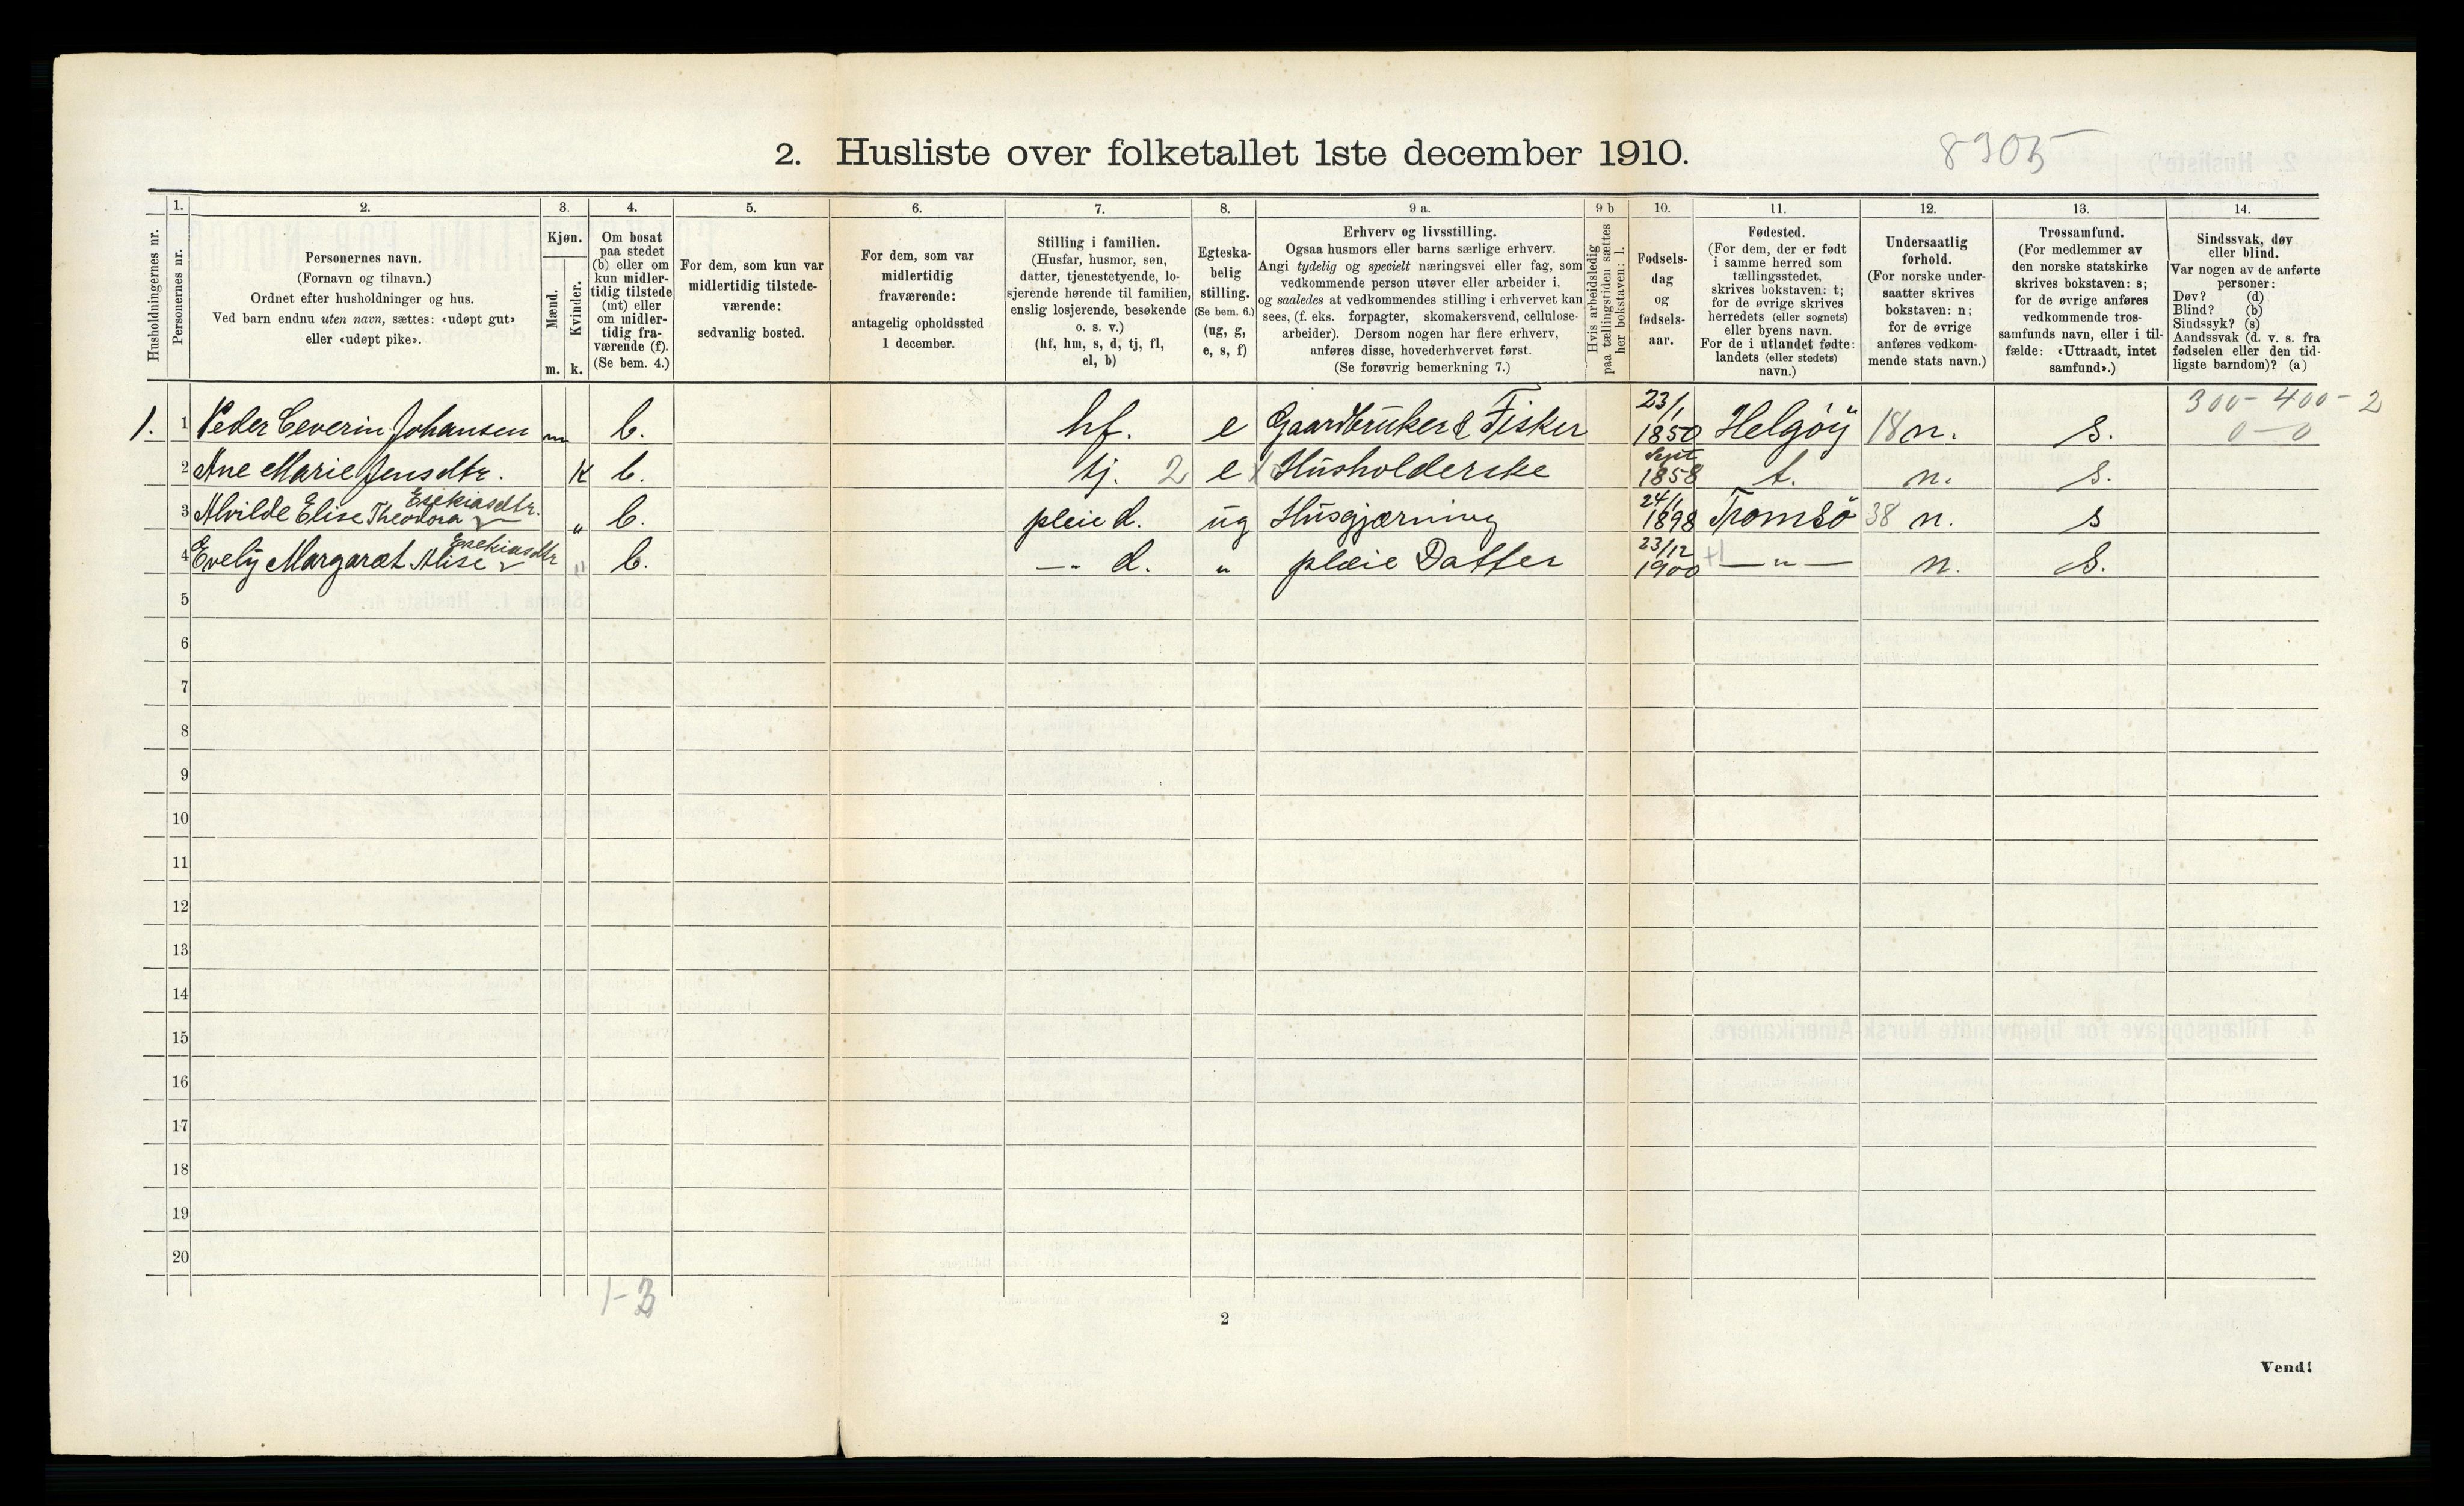 2. Husliste over folketallet 1ste december 1910.
8305
Husholdningernes nr.
1.
Personernes nr.
2.
Personernes navn.
(Fornavn og tilnavn.)
Ordnet efter husholdninger og hus.
Ved barn endnu uten navn, sættes: «udøpt gut»
eller «udøpt pike».
3.
Kjøn.
Mænd.
Kvinder.
m. k.
4.
Om bosat
paa stedet
(b) eller om
kun midler-
tidig tilstede
(mt) eller
om midler-
tidig fra-
værende (f).
(Se bem. 4.)
5.
For dem, som kun var
midlertidig tilstede-
værende:
sedvanlig bosted.
6.
For dem, som var
midlertidig
fraværende:
antagelig opholdssted
1 december.
7.
Stilling i familien.
(Husfar, husmor, søn,
datter, tjenestetyende, lo-
sjerende hørende til familien,
enslig losjerende, besøkende
o. s. v.)
(hf, hm, s, d, tj, fl,
el, b)
8.
Egteska-
belig
stilling.
(Se bem. 6.)
(ug, g,
e, s, f)
9 a.
Erhverv og livsstilling.
Ogsaa husmors eller barns særlige erhverv.
Angi tydelig og specielt næringsvei eller fag, som
vedkommende person utøver eller arbeider i,
og saaledes at vedkommendes stilling i erhvervet kan
sees, (f. eks. forpagter, skomakersvend, cellulose-
arbeider). Dersom nogen har flere erhverv,
anføres disse, hovederhvervet først.
(Se forøvrig bemerkning 7.)
9 b
Hvis arbeidsledig
paa tællingstiden sættes
her bokstaven: l.
10.
Fødsels-
dag
og
fødsels-
aar.
11.
Fødested.
(For dem, der er født
i samme herred som
tællingsstedet,
skrives bokstaven: t;
for de øvrige skrives
herredets (eller sognets)
eller byens navn.
For de i utlandet fødte:
landets (eller stedets)
navn.)
12.
Undersaatlig
forhold.
(For norske under-
saatter skrives
bokstaven: n;
for de øvrige
anføres vedkom-
mende stats navn.)
13.
Trossamfund.
(For medlemmer av
den norske statskirke
skrives bokstaven: s;
for de øvrige anføres
vedkommende tros-
samfunds navn, eller i til-
fælde: «Uttraadt, intet
samfund».)
14.
Sindssvak, døv
eller blind.
Var nogen av de anførte
personer:
Døv? (d)
Blind? (b)
Sindssyk? (s)
Aandssvak (d. v. s. fra
fødselen eller den tid-
ligste barndom)? (a)
300 - 400 - 2
0 - 0
1. 1 Peder Ceverin Johansen m b. hf. e Gaardbruker & Fisker 23/1 1850 Helgöy 18 n. s.
2 Ane Marie Jensdtr. K b. tj. 2 e Husholderske Sept 1858 t. n. s.
3 Alvilde Elise Theodora Esekiasdtr. " b. pleie d. ug Husgjærning 24/1 1898 Tromsö 38 n. s
4 Evely Margaræt Alise Esekiasdtr " b. -"- d. " plæie Datter 23/12 1900 +1 —"— n. S.
5
6
7
8
9
10
11
12
13
14
15
16
17
18
19
20
1-3
2
Vend!